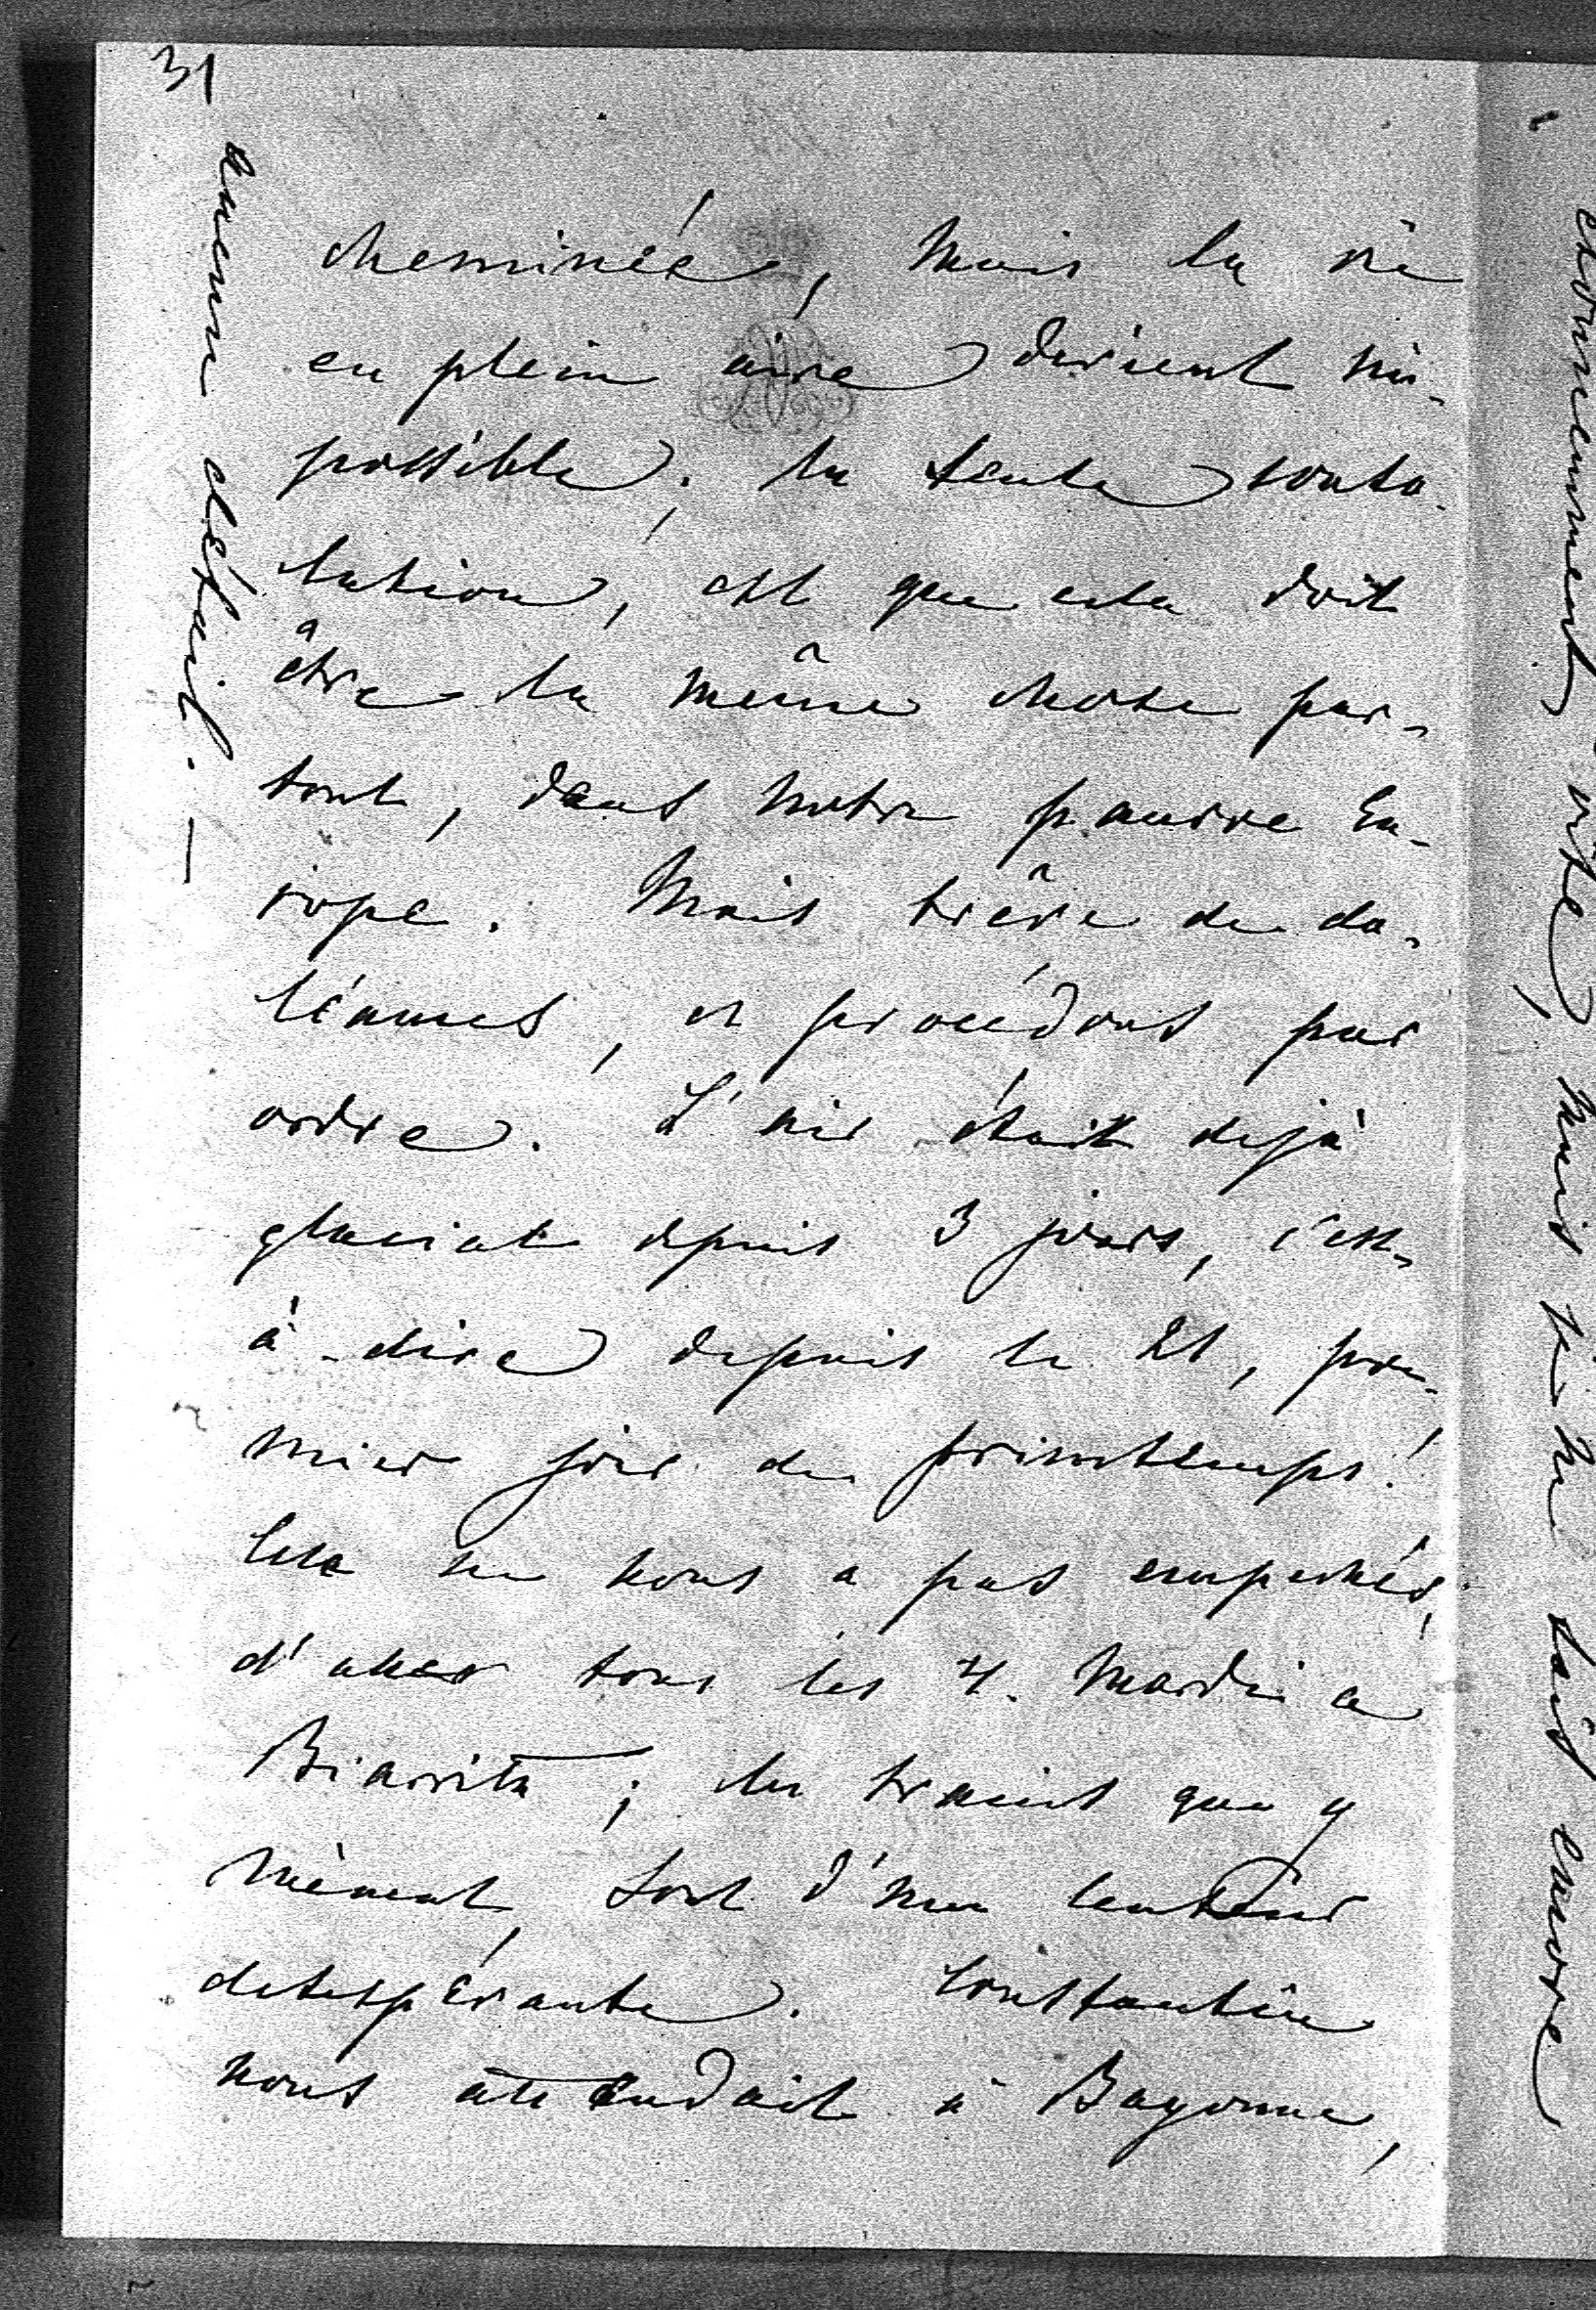 31
cheminée, mais la vie
en plein aire devient im-
possible; la seule conso-
lation, est que cela doit
être la même chose par-
tout, dans notre pauvre Eu-
rope. Mais trêve de do-
léances, et procédons par
ordre. L'air était dejà
glacial depuis 3 jours, c'est-
à-dire depuis le 21, pre-
mier jour du printemps!
Cela ne nous a pas empechés,
d'aller tous les 4. Mardi à
Biarritz; les trains que y
mènent, sont d'une lenteur
desespérante. Constantin
nous attendait à Bayonne,
aucun détail. —
étonnemment vite, mais je ne sais encore